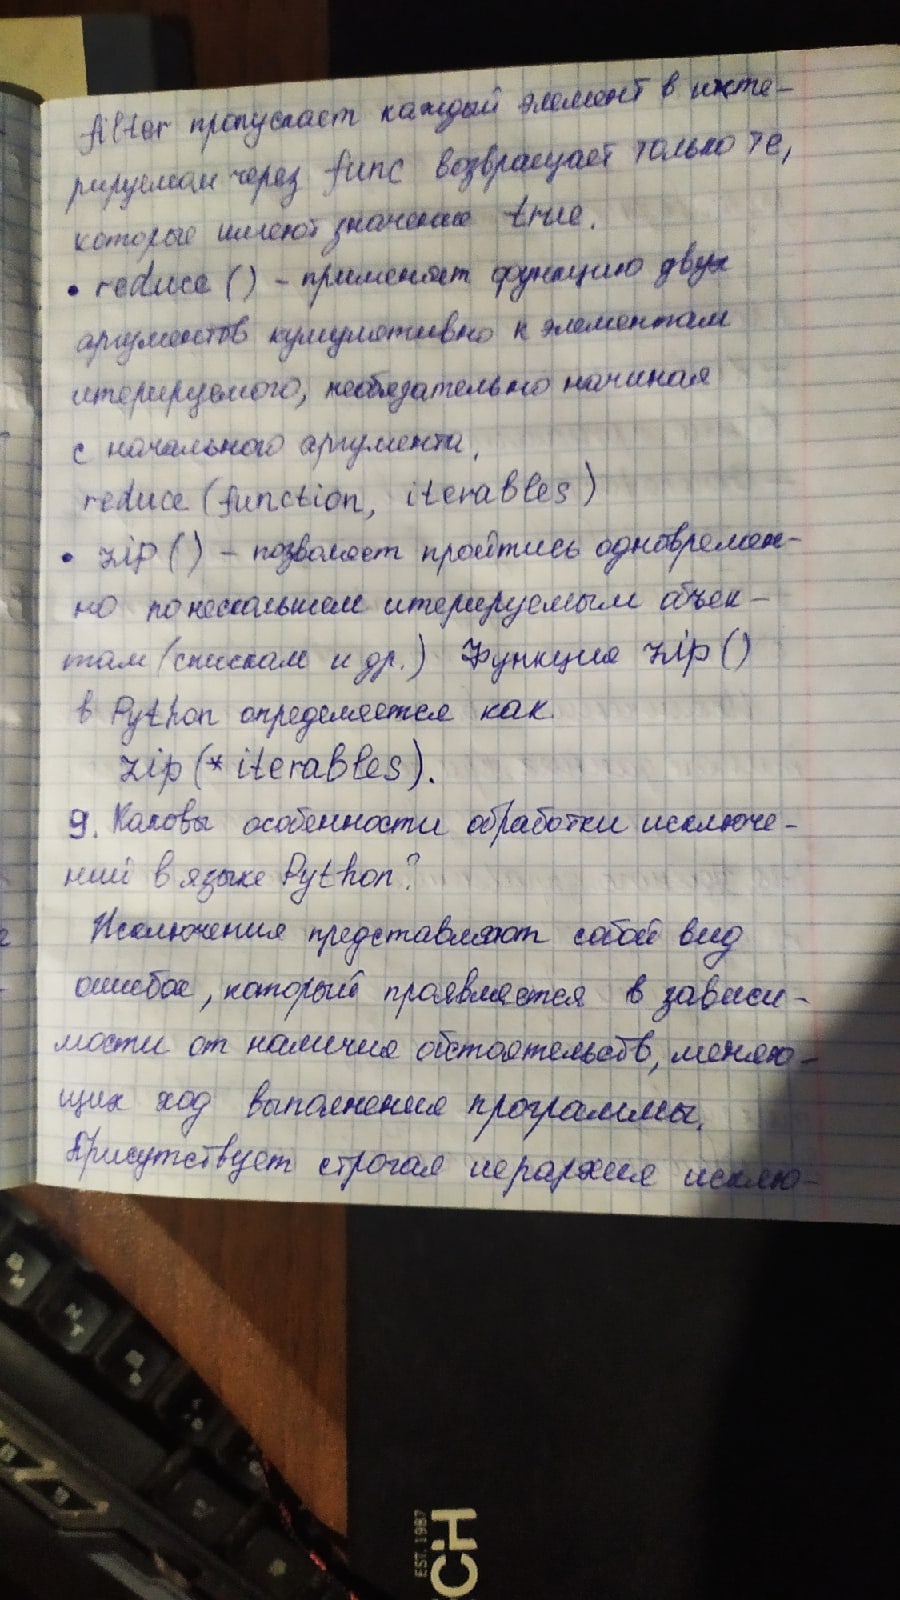 filter пропускает каждый элемент в инте-
рируемом через func возвращает только те,
которые имеют значение true.
• reduce () - применяет функцию двух
аргументов кумулятивно к элементам
итерируемого, необязательно начиная
с начального аргумента.
reduce (function, iterables)
• zip () - позволяет пройтись одновремен-
но по нескольким итерируемым объек-
там (спискам и др.) Функция zip ()
в Python определяется как
zip (* iterables).
9. Каковы особенности обработки исключе-
ний в языке Python?
Исключения представляют собой вид
ошибок, который проявляется в зависи-
мости от наличия обстоятельств, меняю-
щих ход выполнения программы.
Присутствует строгая иерархия исклю-
EST. 1987
CH